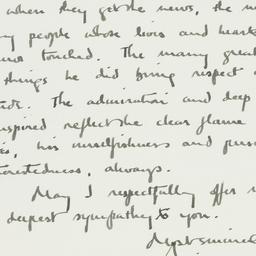 when they get the news, the m
y people whose lives and hearts
touched. The many great
things he did bring respect
. The admiration and deep
nspired reflect the clear flame
his unselfishness and pure
terestedness, always.
May I respectfully offer
deepest sympathy to you.
Most sincere